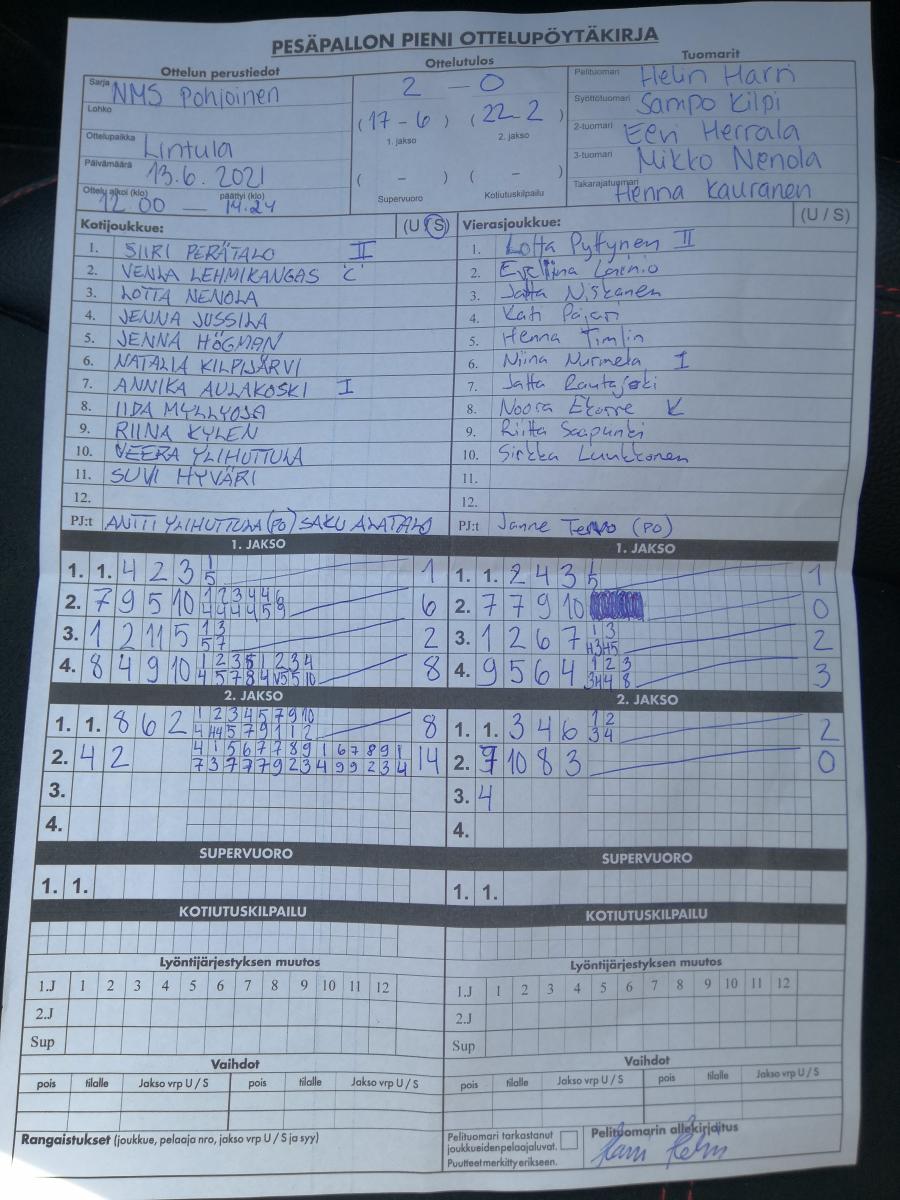 PESÄPALLON PIENI OTTELUPÖYTÄKIRJA
Ottelun perustiedot Ottelutulos Tuomarit
Sarja NMS Pohjoinen
Lohko
Ottelupaikka Lintula
Päivämäärä 13.6.2021
Ottelu alkoi (klo) päättyi (klo)
12.00 — 14.24
2 — 0
(17-6) (22-2)
1. jakso 2. jakso
( - ) ( - )
Supervuoro Kotiutuskilpailu
Pelituomari Helin Harri
Syöttötuomari Sampo Kilpi
2-tuomari Eeri Herrala
3-tuomari Mikko Nenola
Takarajatuomari Henna Kauranen
Kotijoukkue: (U/S)
1. SIIRI PERÄTALO II
2. VENLA LEHMIKANGAS C
3. LOTTA NENOLA
4. JENNA JUSSILA
5. JENNA HÖGMAN
6. NATALIA KILPIJÄRVI
7. ANNIKA AULAKOSKI I
8. IIDA MYLLYOJA
9. RIINA KYLEN
10. VEERA YLIHUTTULA
11. SUVI HYVÄRI
12.
PJ:t ANTTI YLIHUTTULA (PO) SAKU ALATALO
Vierasjoukkue: (U / S)
1. Lotta Pyttynen II
2. Eveliina
3. Jatta Niskanen
4. Kati Pajari
5. Henna Timlin
6. Niina Nurmela I
7. Jatta Rautajoki
8. Noora K
9. Riitta Saapunki
10. Sirkka Luukkonen
11.
12.
PJ:t Janne Tervo (PO)
1. JAKSO
1. 1. 4 2 3 1 1
5
2. 7 9 5 10 6
3. 1 2 11 5 1 3 2
5 7
4. 8 4 9 10 8
2. JAKSO
1. 1. 8 6 2 1 2 3 4 5 7 9 10 8
2. 4 2 4 1 5 6 7 7 8 9 1 6 7 8 9 1 14
7 3 7 7 7 9 2 3 4 9 9 2 3 4
3.
4.
SUPERVUORO
1. 1.
KOTIUTUSKILPAILU
Lyöntijärjestyksen muutos
1.J 1 2 3 4 5 6 7 8 9 10 11 12
2.J
Sup
Vaihdot
pois tilalle Jakso vrp U / S pois tilalle Jakso vrp U / S
Rangaistukset (joukkue, pelaaja nro, jakso vrp U / S ja syy)
1. JAKSO
1. 1. 2 4 3 1 1
5
2. 7 7 9 10 0
3. 1 2 6 7 1 3 2
4. 9 5 6 4 1 2 3 3
2. JAKSO
1. 1. 3 4 6 1 2 2
3 4
2. 7 10 8 3 0
3. 4
4.
SUPERVUORO
1. 1.
KOTIUTUSKILPAILU
Lyöntijärjestyksen muutos
1.J 1 2 3 4 5 6 7 8 9 10 11 12
2.J
Sup
Vaihdot
pois tilalle Jakso vrp U / S pois tilalle Jakso vrp U / S
Pelituomari tarkastanut
joukkueidenpelaajaluvat.
Puutteet merkitty erikseen.
Pelituomarin allekirjoitus
Harri Helin